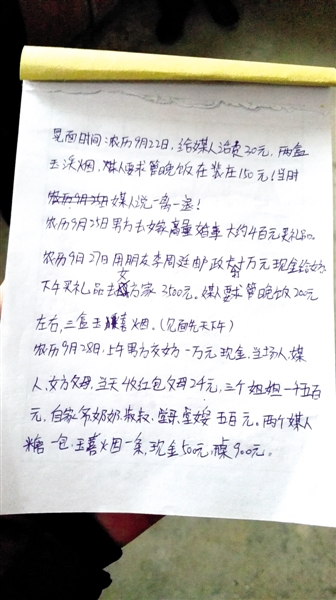 见面时间:农历9月22日,给媒人活费30元,两盒
玉溪烟,媒人要求管晚饭在 花在150元(当时
农历9月25日 媒人说一离一退!
农历9月25日男方去女家商量婚事大约4百元买礼品。
农历9月27日用朋友李周廷邮政 万元现金给
下午买礼品去女方家3500元。媒人要求管晚饭200元
左右,三盒玉溪烟。(见面先天下午)
农历9月28日,上午男方交女方一万元现金,当场人,媒
人、女方父母,当天收红包父母24元,三个姐姐一千五百
元,自家爷奶奶,叔叔,堂哥,堂嫂五百元。两个媒人
糖一包,玉喜烟一条,现金50元, 900元。